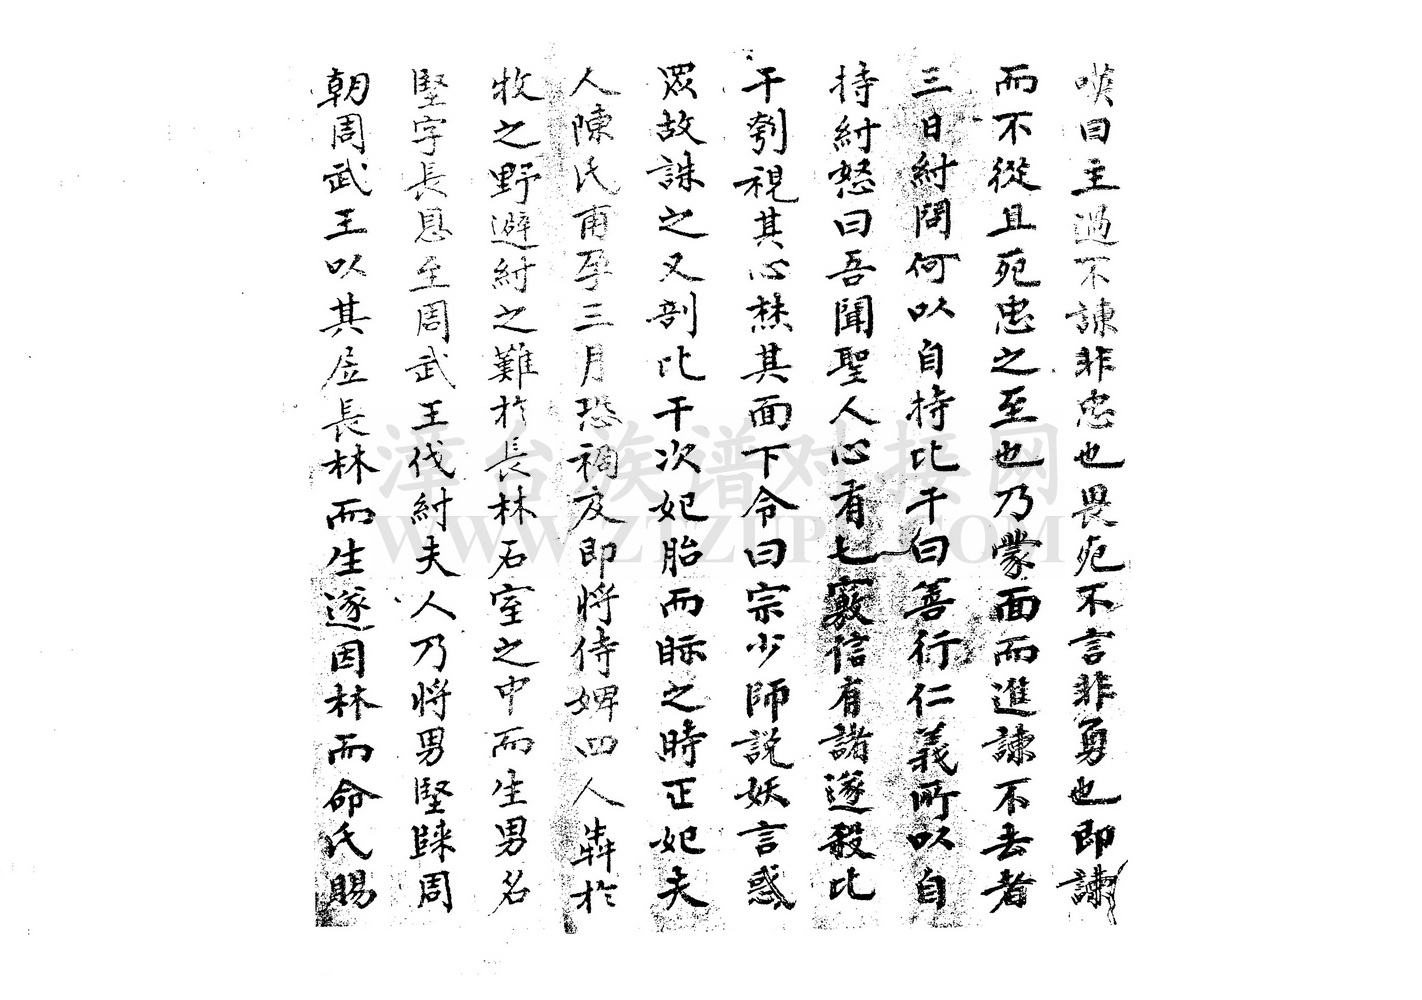 嘆曰主過不諫非忠也畏死不言非勇也即諫
而不從且死忠之至也乃蒙面而進諫不去者
三日紂問何以自持比干曰善行仁義所以自
持紂怒曰吾聞聖人心有七竅信有諸遂殺比
干刳視其心焚其面下令曰宗少師說妖言惑
眾故誅之又剖比干次妃胎而眎之時正妃夫
人陳氏甫孕三月恐禍及即將侍婢四人奔於
牧之野避紂之難於長林石室之中而生男名
堅字長恩至周武王伐紂夫人乃將男堅歸周
朝周武王以其居長林而生遂因林而命氏賜
漳台族谱对接网
WWW.ZTZUPU.COM